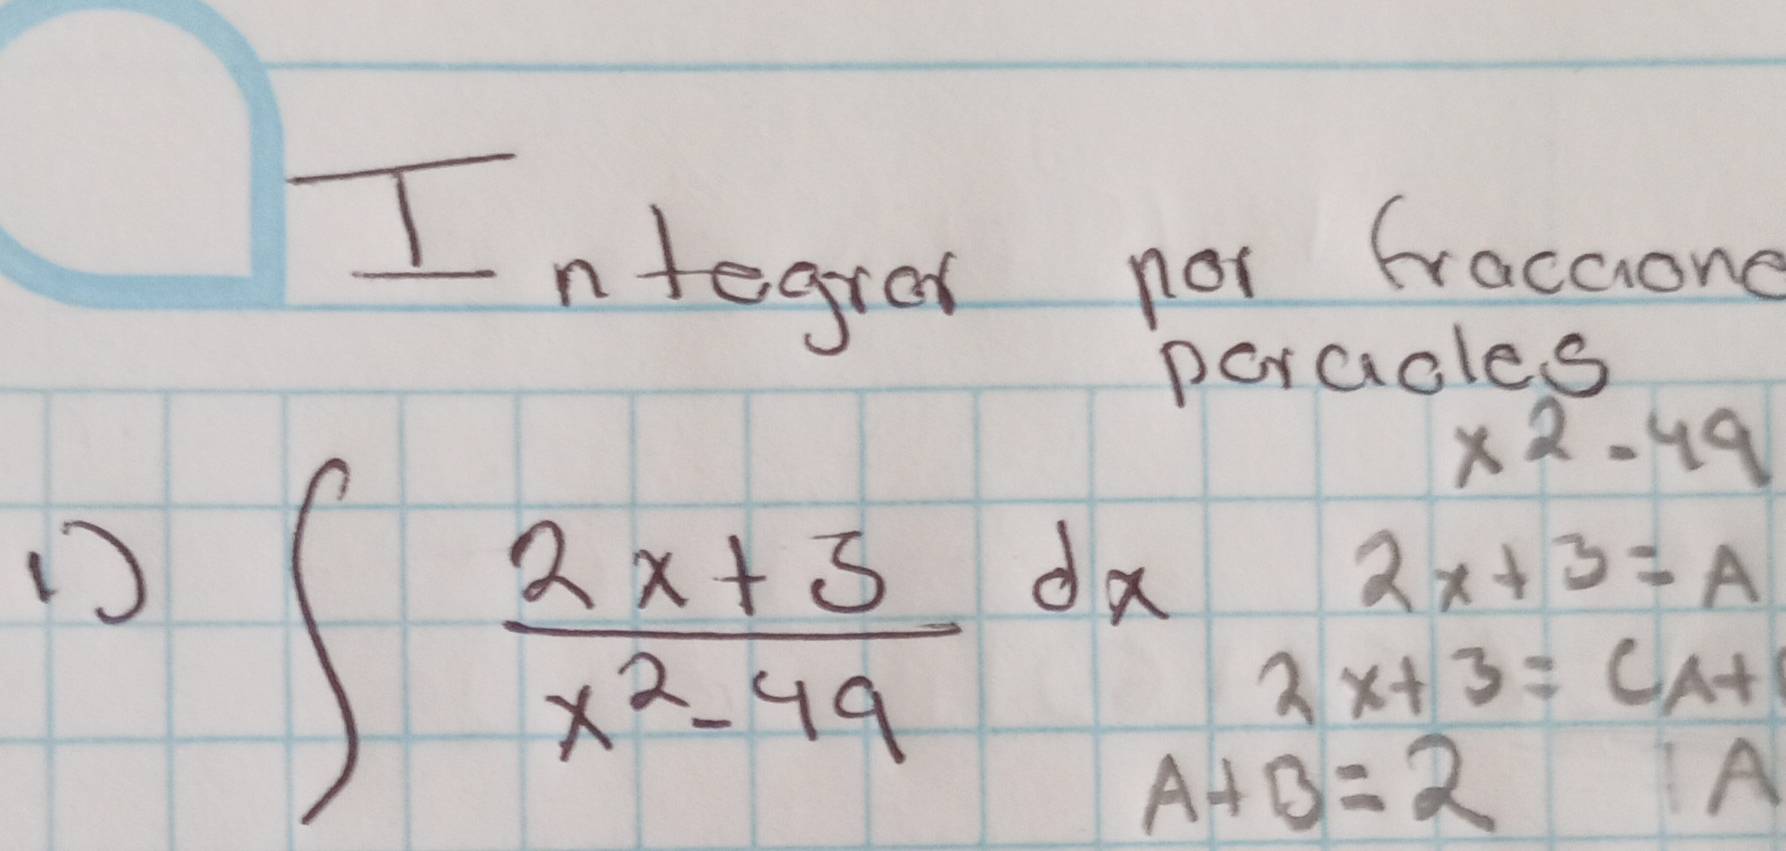 Integrar por fraccione
parciales
x2-49
1) ∫ 2x+3 dx
x²-49
2x+3=A
2x+3=(A+
A+B=2 A